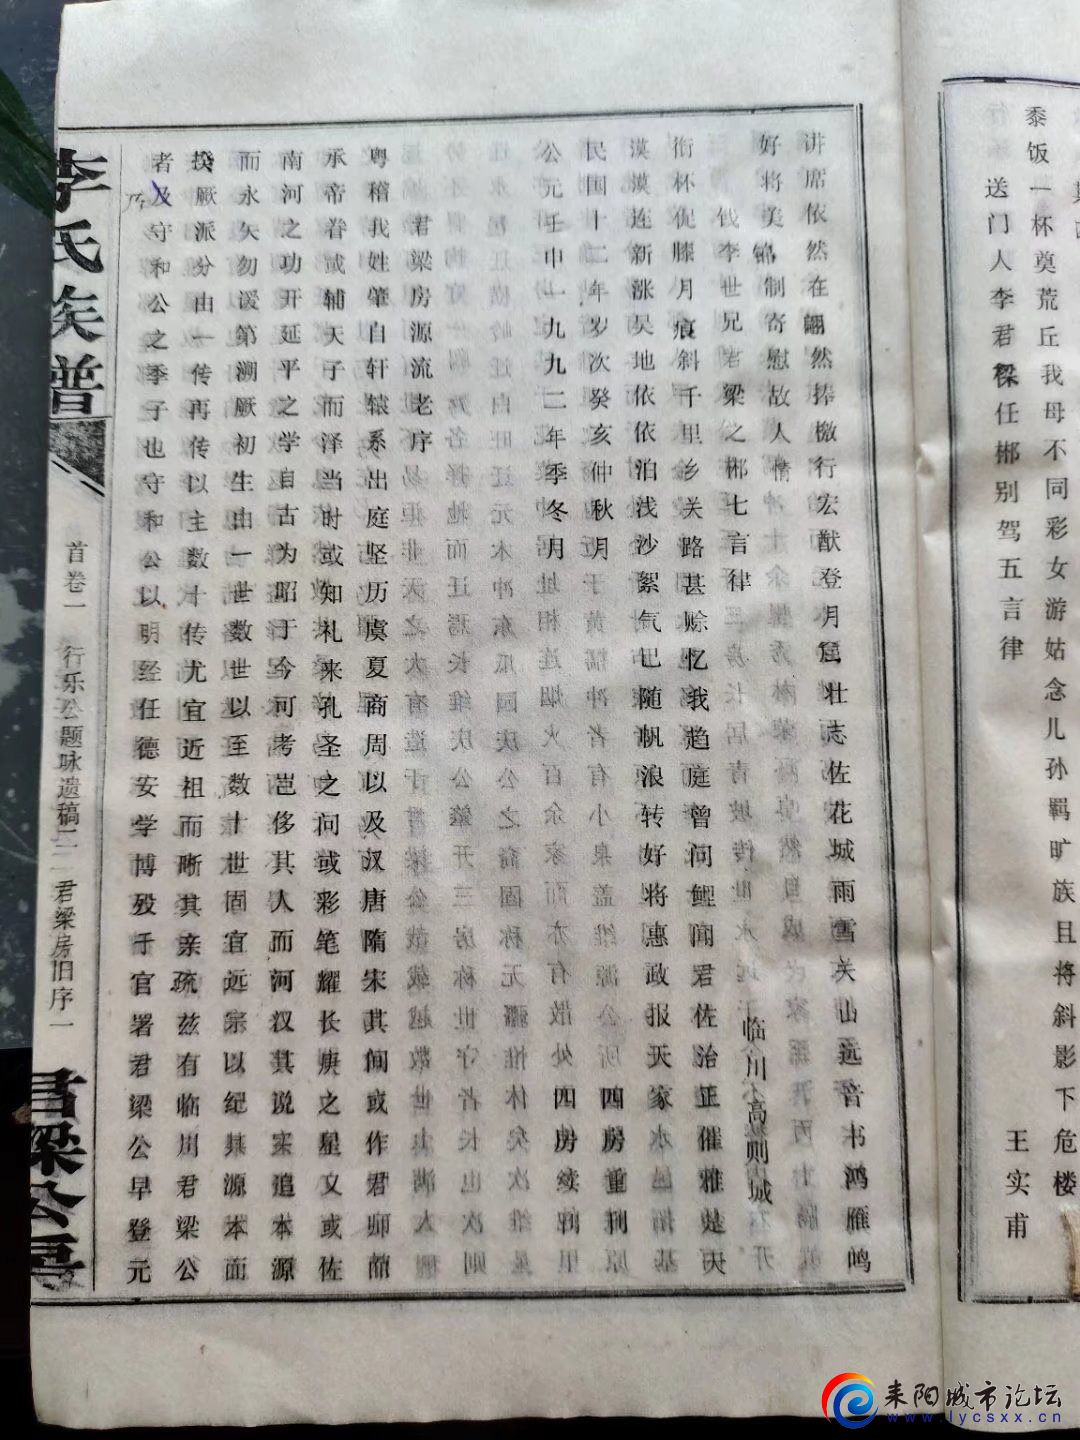 黍饭一杯奠荒丘我母不同彩女游姑念儿孙羁旷族且将斜影下危楼
送门人李君樑任郴别驾五言律 王实甫
讲席依然在翩然捧檄行宏猷登月窟壮志佐花城雨雪关山远音书鸿雁鸣
好将美锦制寄慰故人情
饯李世兄君梁之郴七言律 临川高则城
衔杯促膝月痕斜千里乡关路甚赊忆我趋庭曾问鲤闻君佐治正催雅楚天
漠漠连新涨吴地依依泊浅沙絮气已随帆浪转好将惠政报天家
民国十二年岁次癸亥仲秋月 四房重刊
公元壬申一九九二年季冬月 四房续刊
君梁房源流老序
粤稽我姓肇自轩辕系出庭坚历虞夏商周以及汉唐隋宋其间或作君师前
承帝眷或辅天子而泽当时或知礼来孔圣之问或彩笔耀长庚之星又或佐
南河之功开延平之学自古为昭于今可考岂侈其人而河汉其说实追本源
而永矢勿谖第溯厥初生由一世数世以至数十世固宜远宗以纪其源本面
揆厥派分由一传再传以主数十传尤宜近祖而晰其亲疏兹有临川君梁公
者及守和公之季子也守和公以明经任德安学博殁于官署君梁公早登元
李氏族谱 首卷一 行乐公题咏遗稿二 君梁房旧序一 君梁公房
耒阳城市论坛
www.lycsxx.cn